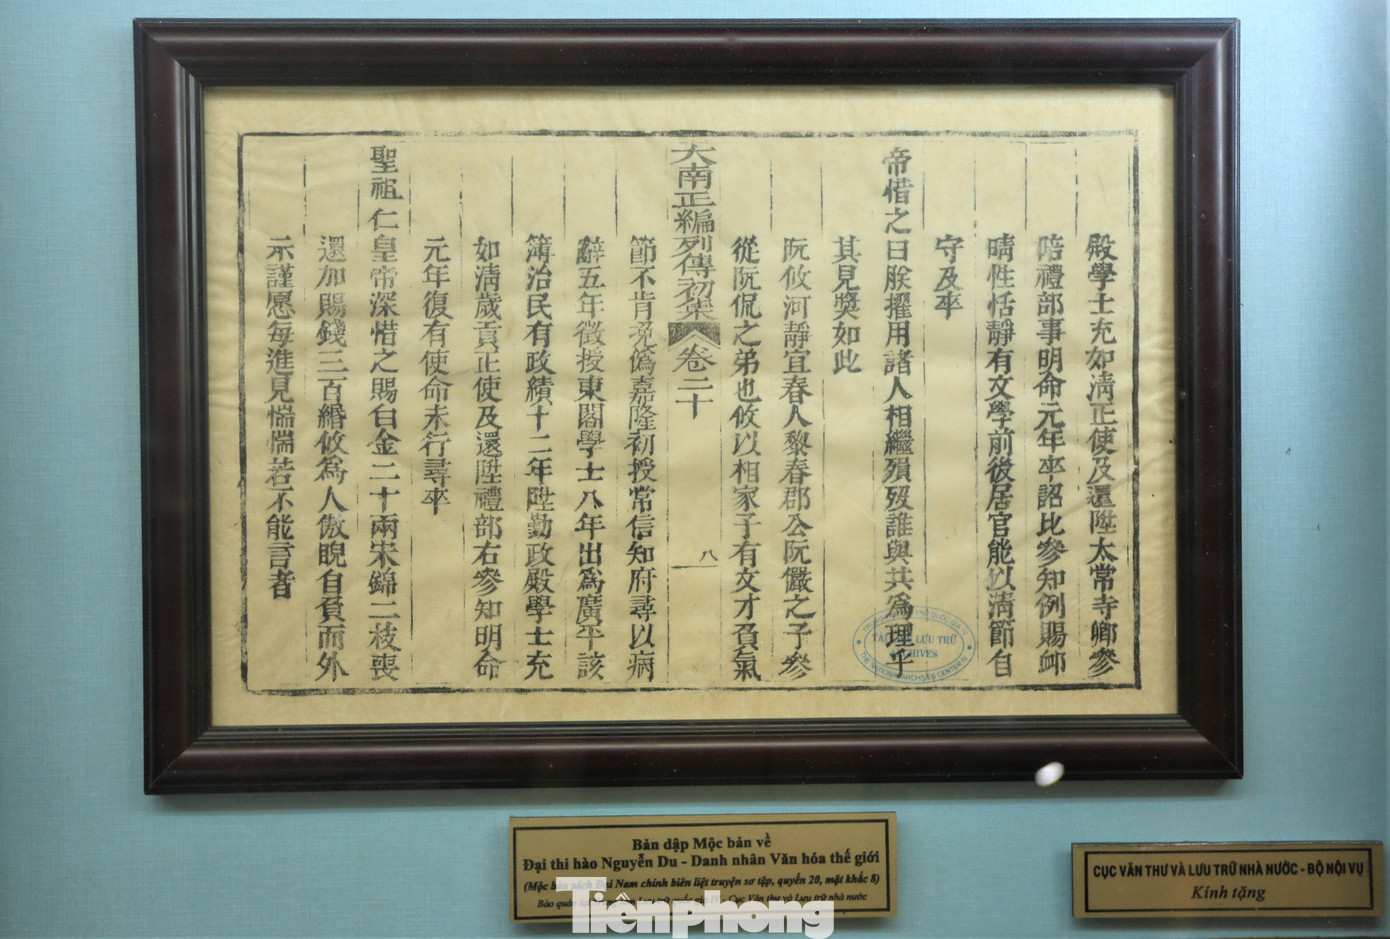 殿學士充如清正使及還陞太常寺卿參
陪禮部事明命元年卒詔比參知例賜卹
晴性恬靜有文學前後居官能以清節自
守及卒
帝惜之曰朕擢用諸人相繼殞歿誰與共爲理乎
其見獎如此
阮攸河靜宜春人黎春郡公阮儼之子參
從阮侃之弟也攸以相家子有文才負氣
大南正編列傳初集 卷二十
八
節不肯充僞嘉隆初授常信知府尋以病
辭五年徵授東閣學士八年出爲廣平該
簿治民有政績十二年陞勤政殿學士充
如清歲貢正使及還陞禮部右參知明命
元年復有使命未行尋卒
聖祖仁皇帝深惜之賜白金二十兩宋錦二枝喪
還加賜錢三百緡攸爲人傲睨自負而外
示謹愿每進見惴惴若不能言者
TÀI LIỆU LƯU TRỮ
ARCHIVES
THE NATIONAL ARCHIVES CENTER
Bản dập Mộc bản về
Đại thi hào Nguyễn Du - Danh nhân Văn hóa thế giới
(Mộc bản sách Đại Nam chính biên liệt truyện sơ tập, quyển 20, mặt khắc 8)
Bảo quản tại Lưu trữ quốc gia IV - Cục Văn thư và Lưu trữ nhà nước
CỤC VĂN THƯ VÀ LƯU TRỮ NHÀ NƯỚC - BỘ NỘI VỤ
Kính tặng
Tiênphong